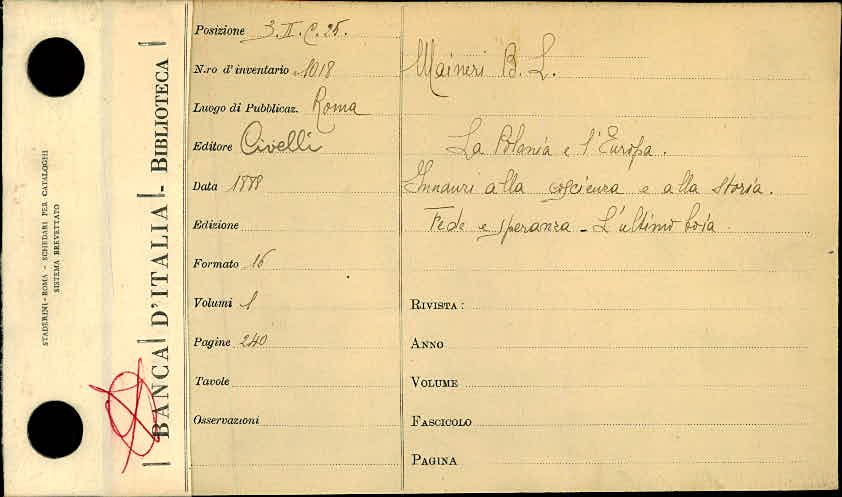 STADERINI-ROMA - SCHEDARI PER CATALOGHI
SISTEMA BREVETTATO
BANCA D'ITALIA - BIBLIOTECA
Posizione 3. II. C. 25.
N.ro d'inventario 1018
Luogo di Pubblicaz. Roma
Editore Civelli
Data 1888
Edizione
Formato 16
Volumi 1
Pagine 240
Tavole
Osservazioni
Maineri B. L.
La Polonia e l'Europa.
Innanzi alla coscienza e alla storia.
Fede e speranza - L'ultimo boia.
RIVISTA:
ANNO
VOLUME
FASCICOLO
PAGINA